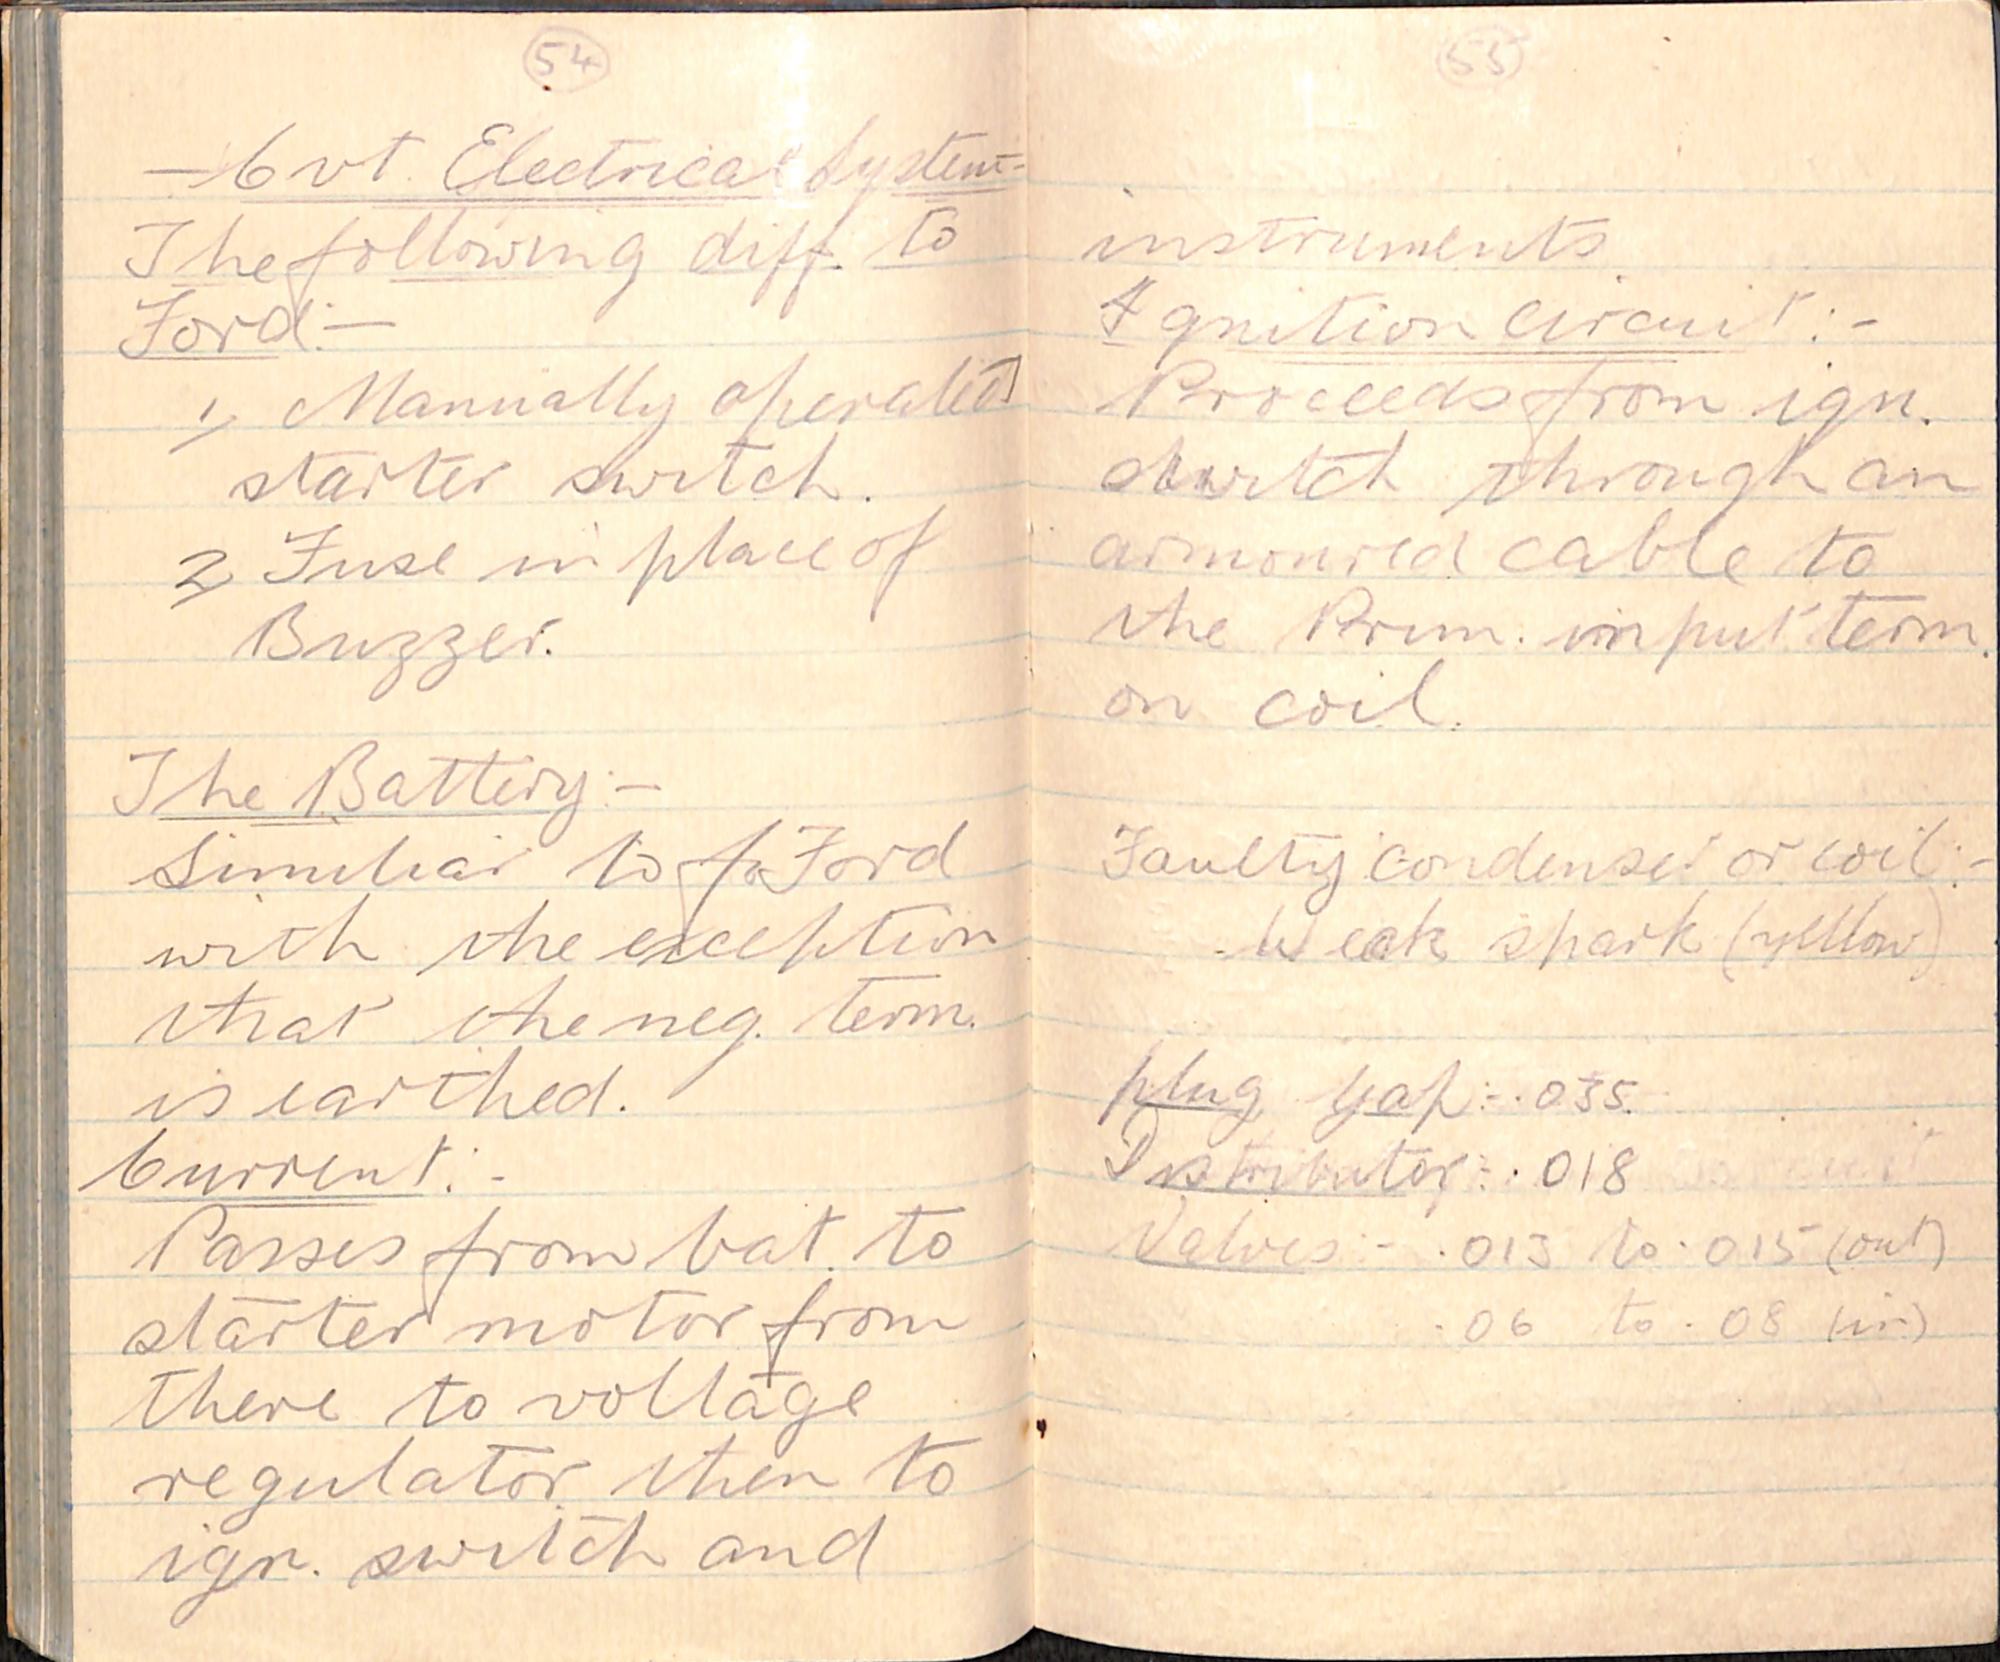 54
- 6 vt. Electrical System -
The following diff. to
Ford:-
1, Manually operated
starter switch.
2, Fuse in place of
Buzzer.
The Battery:-
Similiar to Ford
with the exception
that the neg. term.
is earthed.
Current:-
Passes from bat. to
starter motor from
there to voltage
regulator then to
ign. switch and
55
instruments.
Ignition circuit:-
Proceeds from ign.
switch through an
armoured cable to
the Prim. input term.
on coil.
Faulty condenser or coil:-
Weak spark (yellow)
plug gap:- .035.
Distributor:- .018
Valves:- .013 to .015 (out)
.06 to .08 (in)